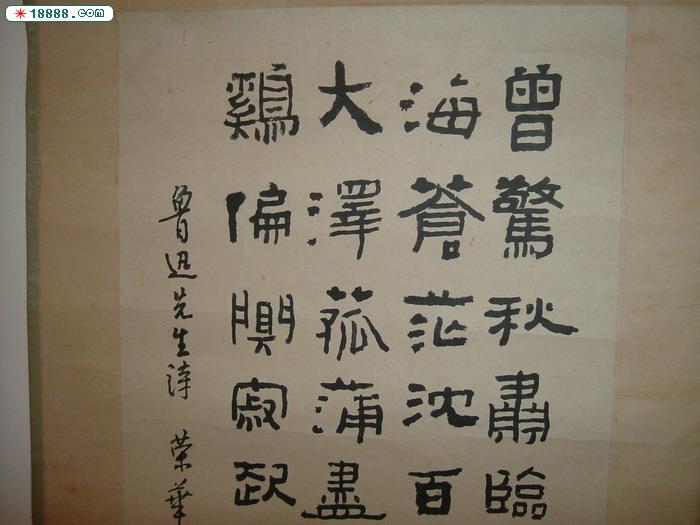 18888.com
曾驚秋肅臨
海蒼茫沈百
大澤菰蒲盡
鷄偏闃寂起
魯迅先生詩 荣華